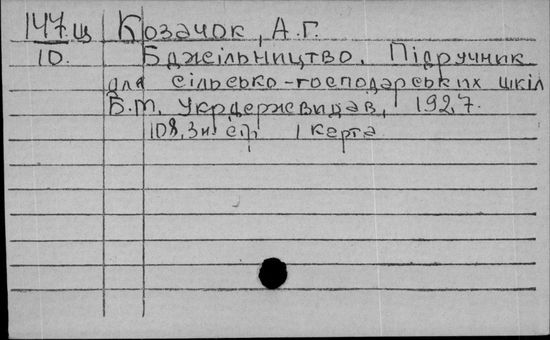 147.щ Козачок, А.Г.
10. Бджільництво. Підручник
для сільсько-господарських шкіл
Б.м. Укрдержвидав, 1927.
108, 3н стр 1 карта